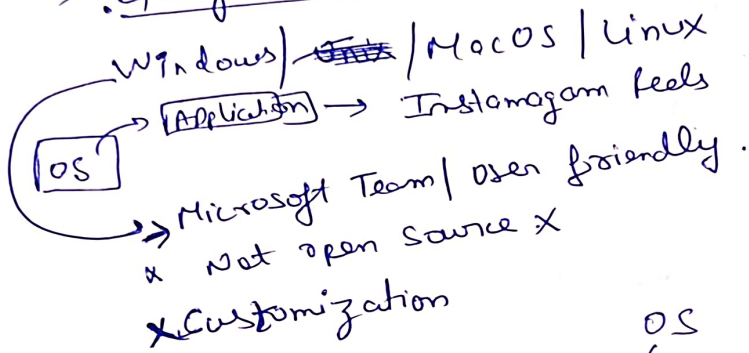 Windows / Unix / MacOS / Linux
Application → Instamagam Reels
OS
Microsoft Team / User friendly.
x Not open source x
x Customization
OS